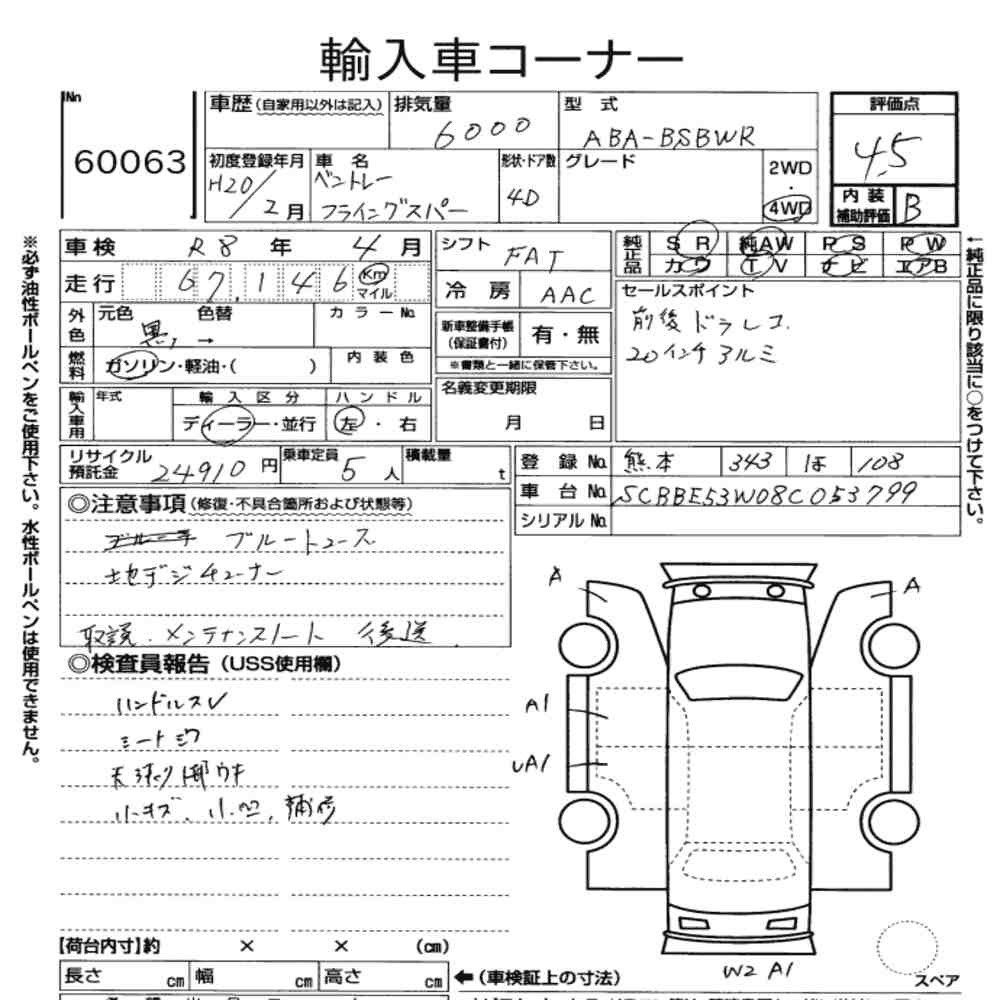 輸入車コーナー
No 60063
車歴(自家用以外は記入)
排気量 6000
型式 ABA-BSBWR
評価点 4.5
内装補助評価 B
初度登録年月 H20/2月
車名 ベントレー フライングスパー
形状・ドア数 4D
グレード
2WD・4WD
車検 R8年 4月
走行 67,146 Km マイル
シフト FAT
冷房 AAC
純正品 SR 純AW PS PW
カワ TV ナビ エアB
外色 元色 黒 → 色替 カラーNo.
燃料 ガソリン・軽油・( ) 内装色
新車整備手帳(保証書付) 有・無
※書類と一緒に保管下さい。
セールスポイント
前後ドラレコ
20インチアルミ
輸入車用 年式
輸入区分 ディーラー・並行
ハンドル 左・右
名義変更期限 月 日
リサイクル預託金 24910円
乗車定員 5人
積載量 t
登録No. 熊本 343 ほ 108
車台No. SCBBE53W08C053799
シリアルNo.
◎注意事項(修復・不具合箇所および状態等)
ブルートゥース
地デジチューナー
取説、メンテナンスノート 後送
◎検査員報告(USS使用欄)
ハンドルスレ
シートシワ
小キズ、小凹、補修
A
A
A1
UA1
W2 A1
【荷台内寸】約 × × (cm)
長さ cm 幅 cm 高さ cm
←(車検証上の寸法)
スペア
※必ず油性ボールペンをご使用下さい。水性ボールペンは使用できません。
←純正品に限り該当に○をつけて下さい。